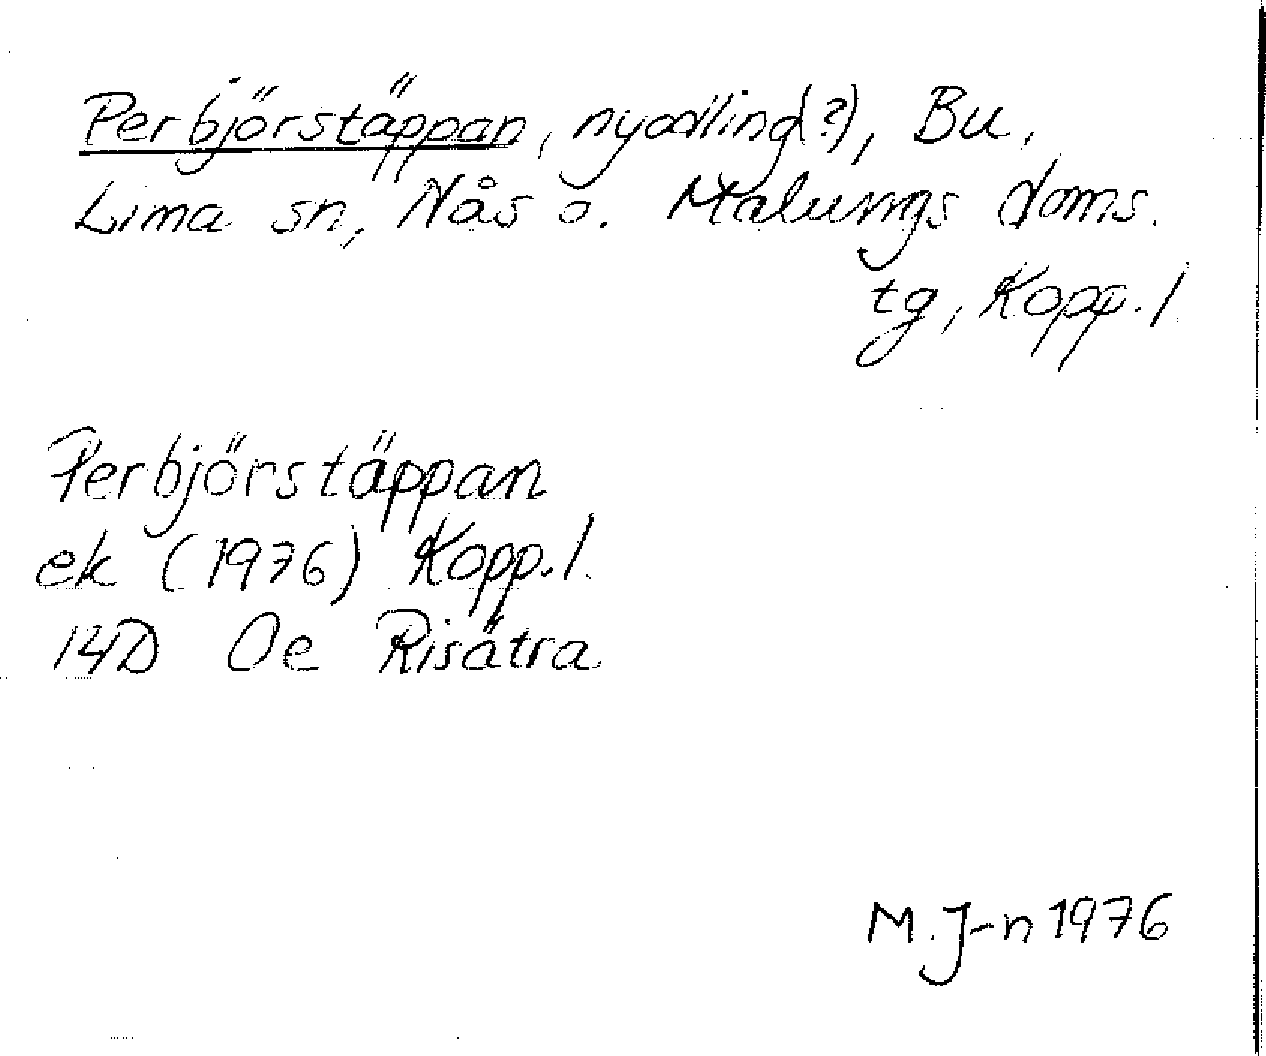 Perbjörstäppan, nyodling(?), Bu,
Lima sn, Nås o. Malungs doms.
tg, Kopp. l
Perbjörstäppan
ek (1976) Kopp. l.
14D 0e Risätra
M. J-n 1976